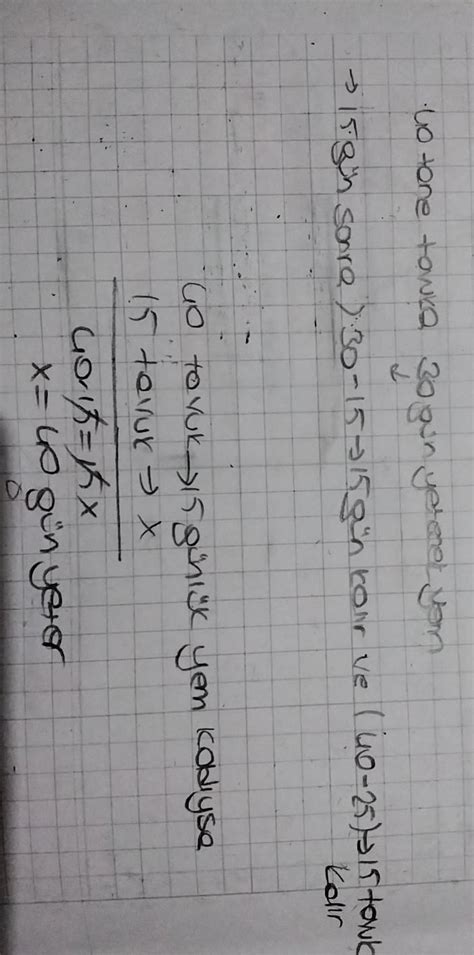 40 tane tavuğa 30 gün yetecek yem
→ 15 gün sonra ) 30-15→15 gün kalır ve (40-25)→15 tavuk kalır
40 tavuk→15 günlük yem kalıysa
15 tavuk → x
40.15=15x
x=40 gün yeter